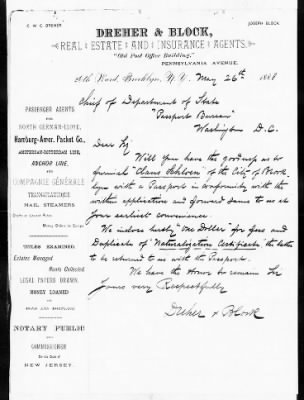 C. W. C. DREHER
JOSEPH BLOCK
DREHER & BLOCK,
REAL ESTATE AND INSURANCE AGENTS.
"Old Post Office Building,"
PENNSYLVANIA AVENUE.
Brooklyn, N.Y. May 26th 1888
Chief of Department of State
"Passport Bureau"
Washington D.C.
Dear Sir
Will you have the goodness to
furnish "Claus of the City of Brook
lyn with a Passport in conformity with the
within application and forward same to us at
your earliest convenience.
We inclose "One Dollar" for fees and
Duplicate of "Naturalization Certificate, the latter
to be returned to us with the Passport.
We have the Honor to remain Sir
Yours very Respectfully
Dreher & Block
PASSENGER AGENTS
FOR
NORTH GERMAN-LLOYD,
Hamburg-Amer. Packet Co.,
AMSTERDAM-ROTTERDAM LINE,
ANCHOR LINE,
AND
COMPAGNIE GÉNÉRALE
TRANSATLANTIQUE
MAIL STEAMERS
TITLES EXAMINED.
Estates Managed
Rents Collected.
LEGAL PAPERS DRAWN.
MONEY LOANED
ON
BOND AND MORTGAGE
NOTARY PUBLIC
AND
COMMISSIONER
For the State of
NEW JERSEY